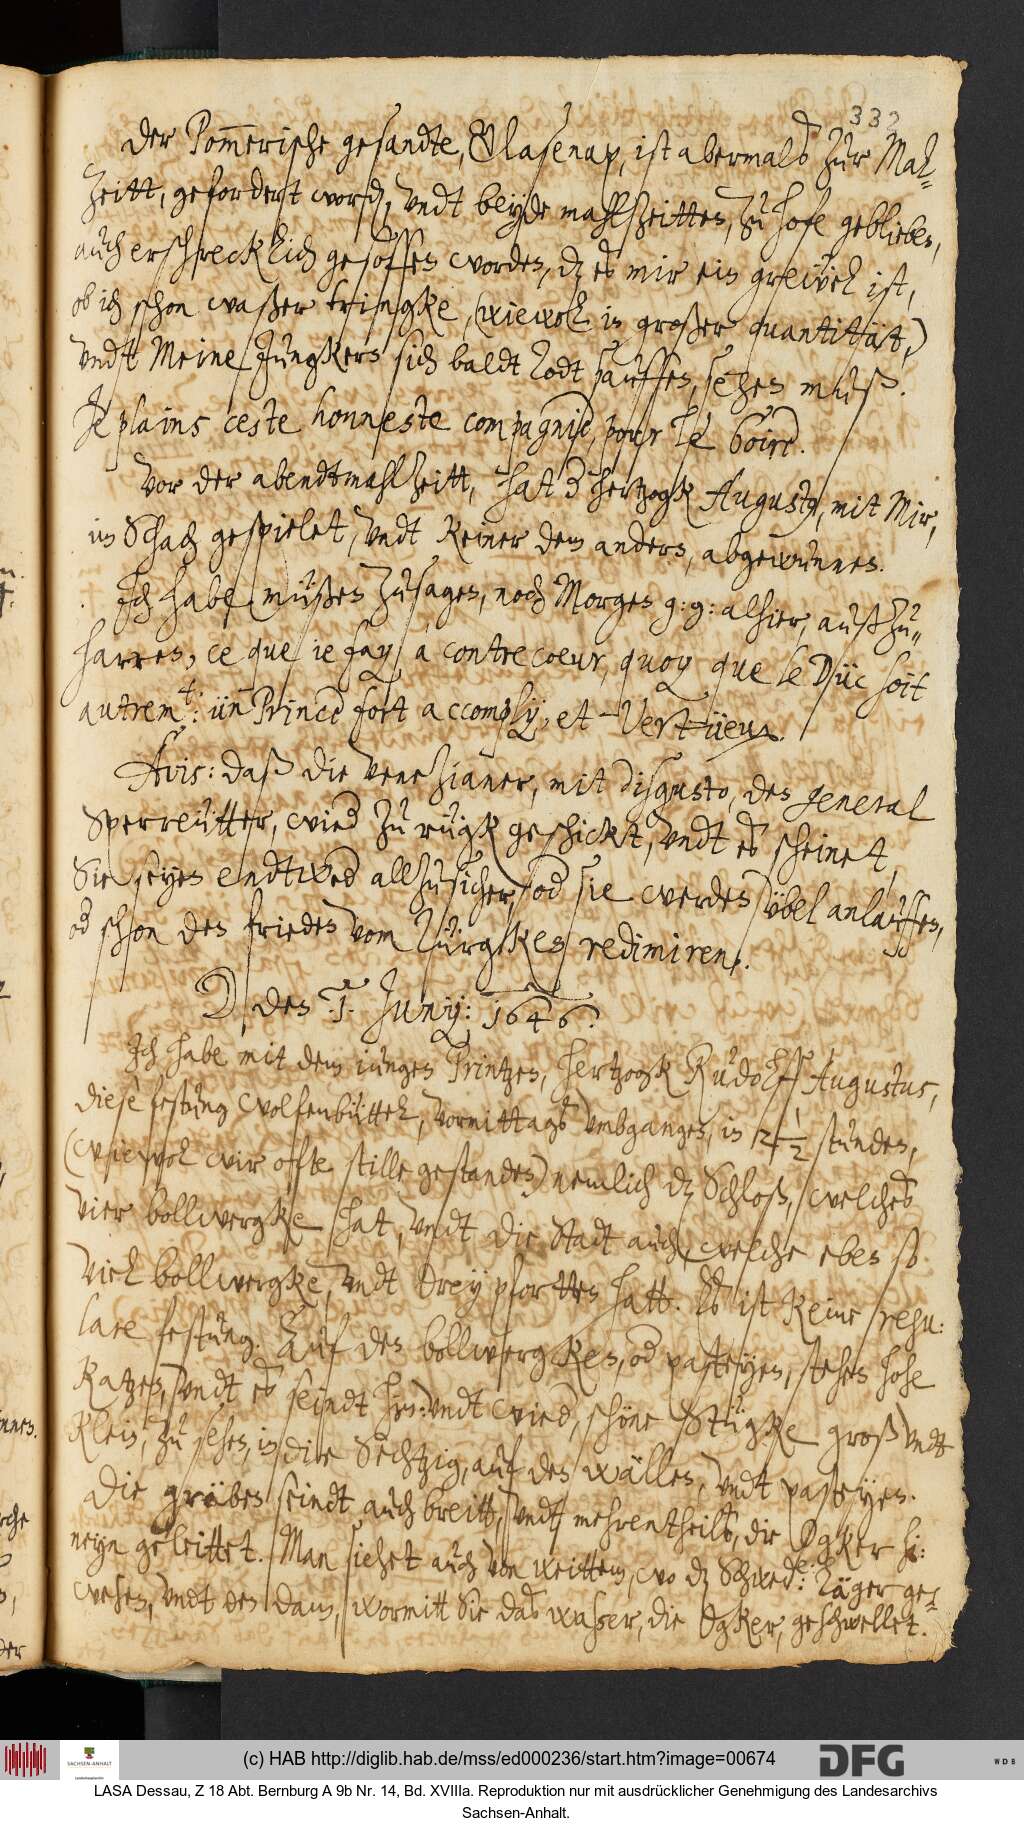 332
Der Pommerische gesandte, Glasenap, ist abermalß zur Mal=
zeitt, gefordert word, undt beyde mahlzeitten, zu hofe geblieben,
auch erschrecklich gesoffen worden, dz es mir ein grewel ist,
ob ich schon waßer trincke, (wiewol in großer quantittät,)
undt Meine Jungkern sich baldt todt sauffen, sehen muß.
Je plains ceste honneste compagnie, pour le boire.
Vor der abendtmahlzeitt, hat hertzogk Augustus, mit Mir,
im Schach gespielet, undt keiner dem andern, abgewunnen.
Ich habe müßen zusagen, noch Morgen g: g: alhier, außzu=
harren, ce que ie fay à contrecoeur, quoy que le Düc soit
autrem.t: ün Prince fort accomply, et vertüeux.
Avis: daß die Venezianer, mit disgusto, den general
Sperreütter, wied zu rügk geschickt, undt es scheinet,
Sie seyen endtwed allzusicher, od sie werden übel anlauffen,
od schon den frieden vom Türgken redimiren.
D den 1. Junij: 1646.
Ich habe mit dem iungen Printzen, Hertzogk Rudolf Augustus,
diese festung Wolfenbüttel, vormittags umbgangen, in 2 1/2 stunden,
(wiewol wir offte stille gestanden) nemlich dz Schloß, welches
vier bollwergke hat, undt die Stadt auch, welche eben so
viel bollwergke, undt drey pfortten hatt. Es ist keine regu:
lare festung. Auf den bollwergken, od pasteyen, stehen hohe
Katzen, undt es seindt hin: undt wied, schöne Stügke groß undt
klein, zu sehen, in die Sechtzig, auf den wällen, undt pasteyen.
Die gräben seindt auch breitt, undt mehrentheils, die Ogker hi:
neyn geleittet. Man siehet auch von weittem, wo dz Schwed: Läger ge=
wesen, undt den dam, wormitt Sie das waßer, die Ogker, geschwellet.
(c) HAB http://diglib.hab.de/mss/ed000236/start.htm?image=00674
SACHSEN-ANHALT
DFG
WDB
LASA Dessau, Z 18 Abt. Bernburg A 9b Nr. 14, Bd. XVIIIa. Reproduktion nur mit ausdrücklicher Genehmigung des Landesarchivs
Sachsen-Anhalt.